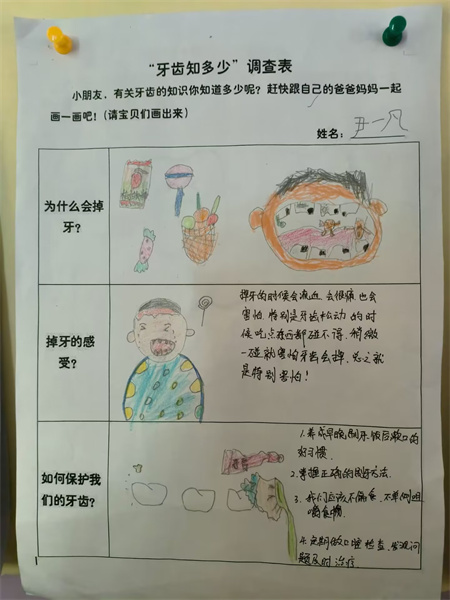 “牙齿知多少”调查表
小朋友，有关牙齿的知识你知道多少呢？赶快跟自己的爸爸妈妈一起
画一画吧！（请宝贝们画出来）
姓名：尹一凡
为什么会掉
牙？
掉牙的感
受？
掉牙的时候会流血 会很痛 也会
害怕 特别是牙齿松动 的时
候吃点东西都碰不得 稍微
一碰就害怕牙齿会掉 总之就
是特别害怕！
如何保护我
们的牙齿？
1.养成早晚刷牙 饭后漱口的
好习惯.
2.掌握正确的刷牙方法.
3.我们应该不偏食.不单侧咀
嚼食物.
4.定期做口腔检查.发现问
题及时治疗